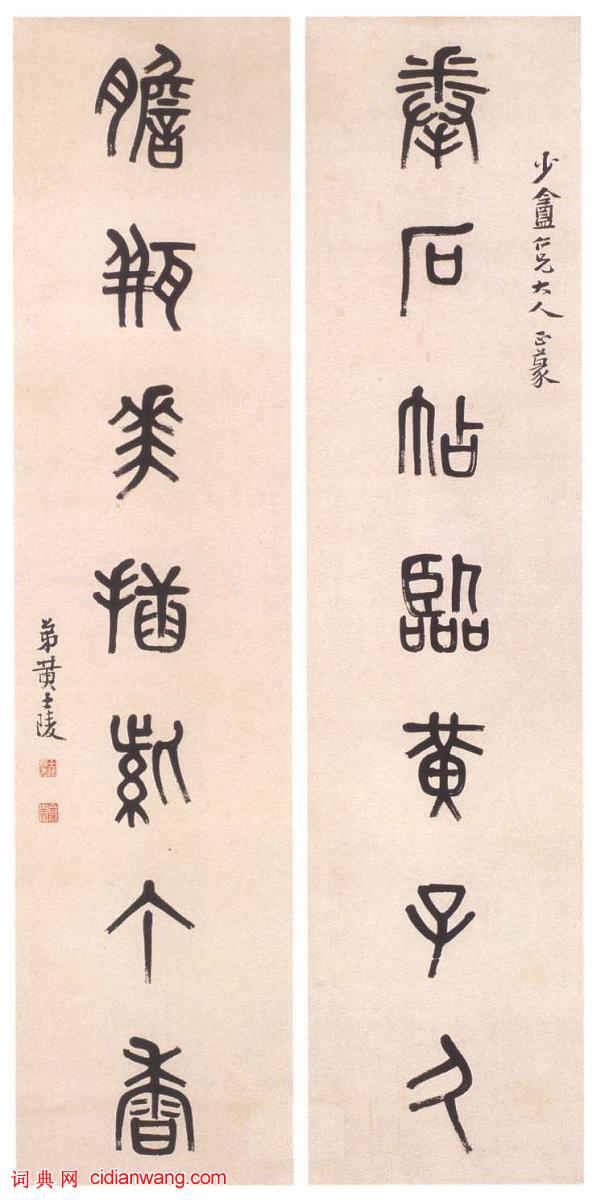 少盦仁兄大人正篆
拳石帖臨黃子久
膽瓶華插紫丁香
弟黃士陵
词典网 cidianwang.com